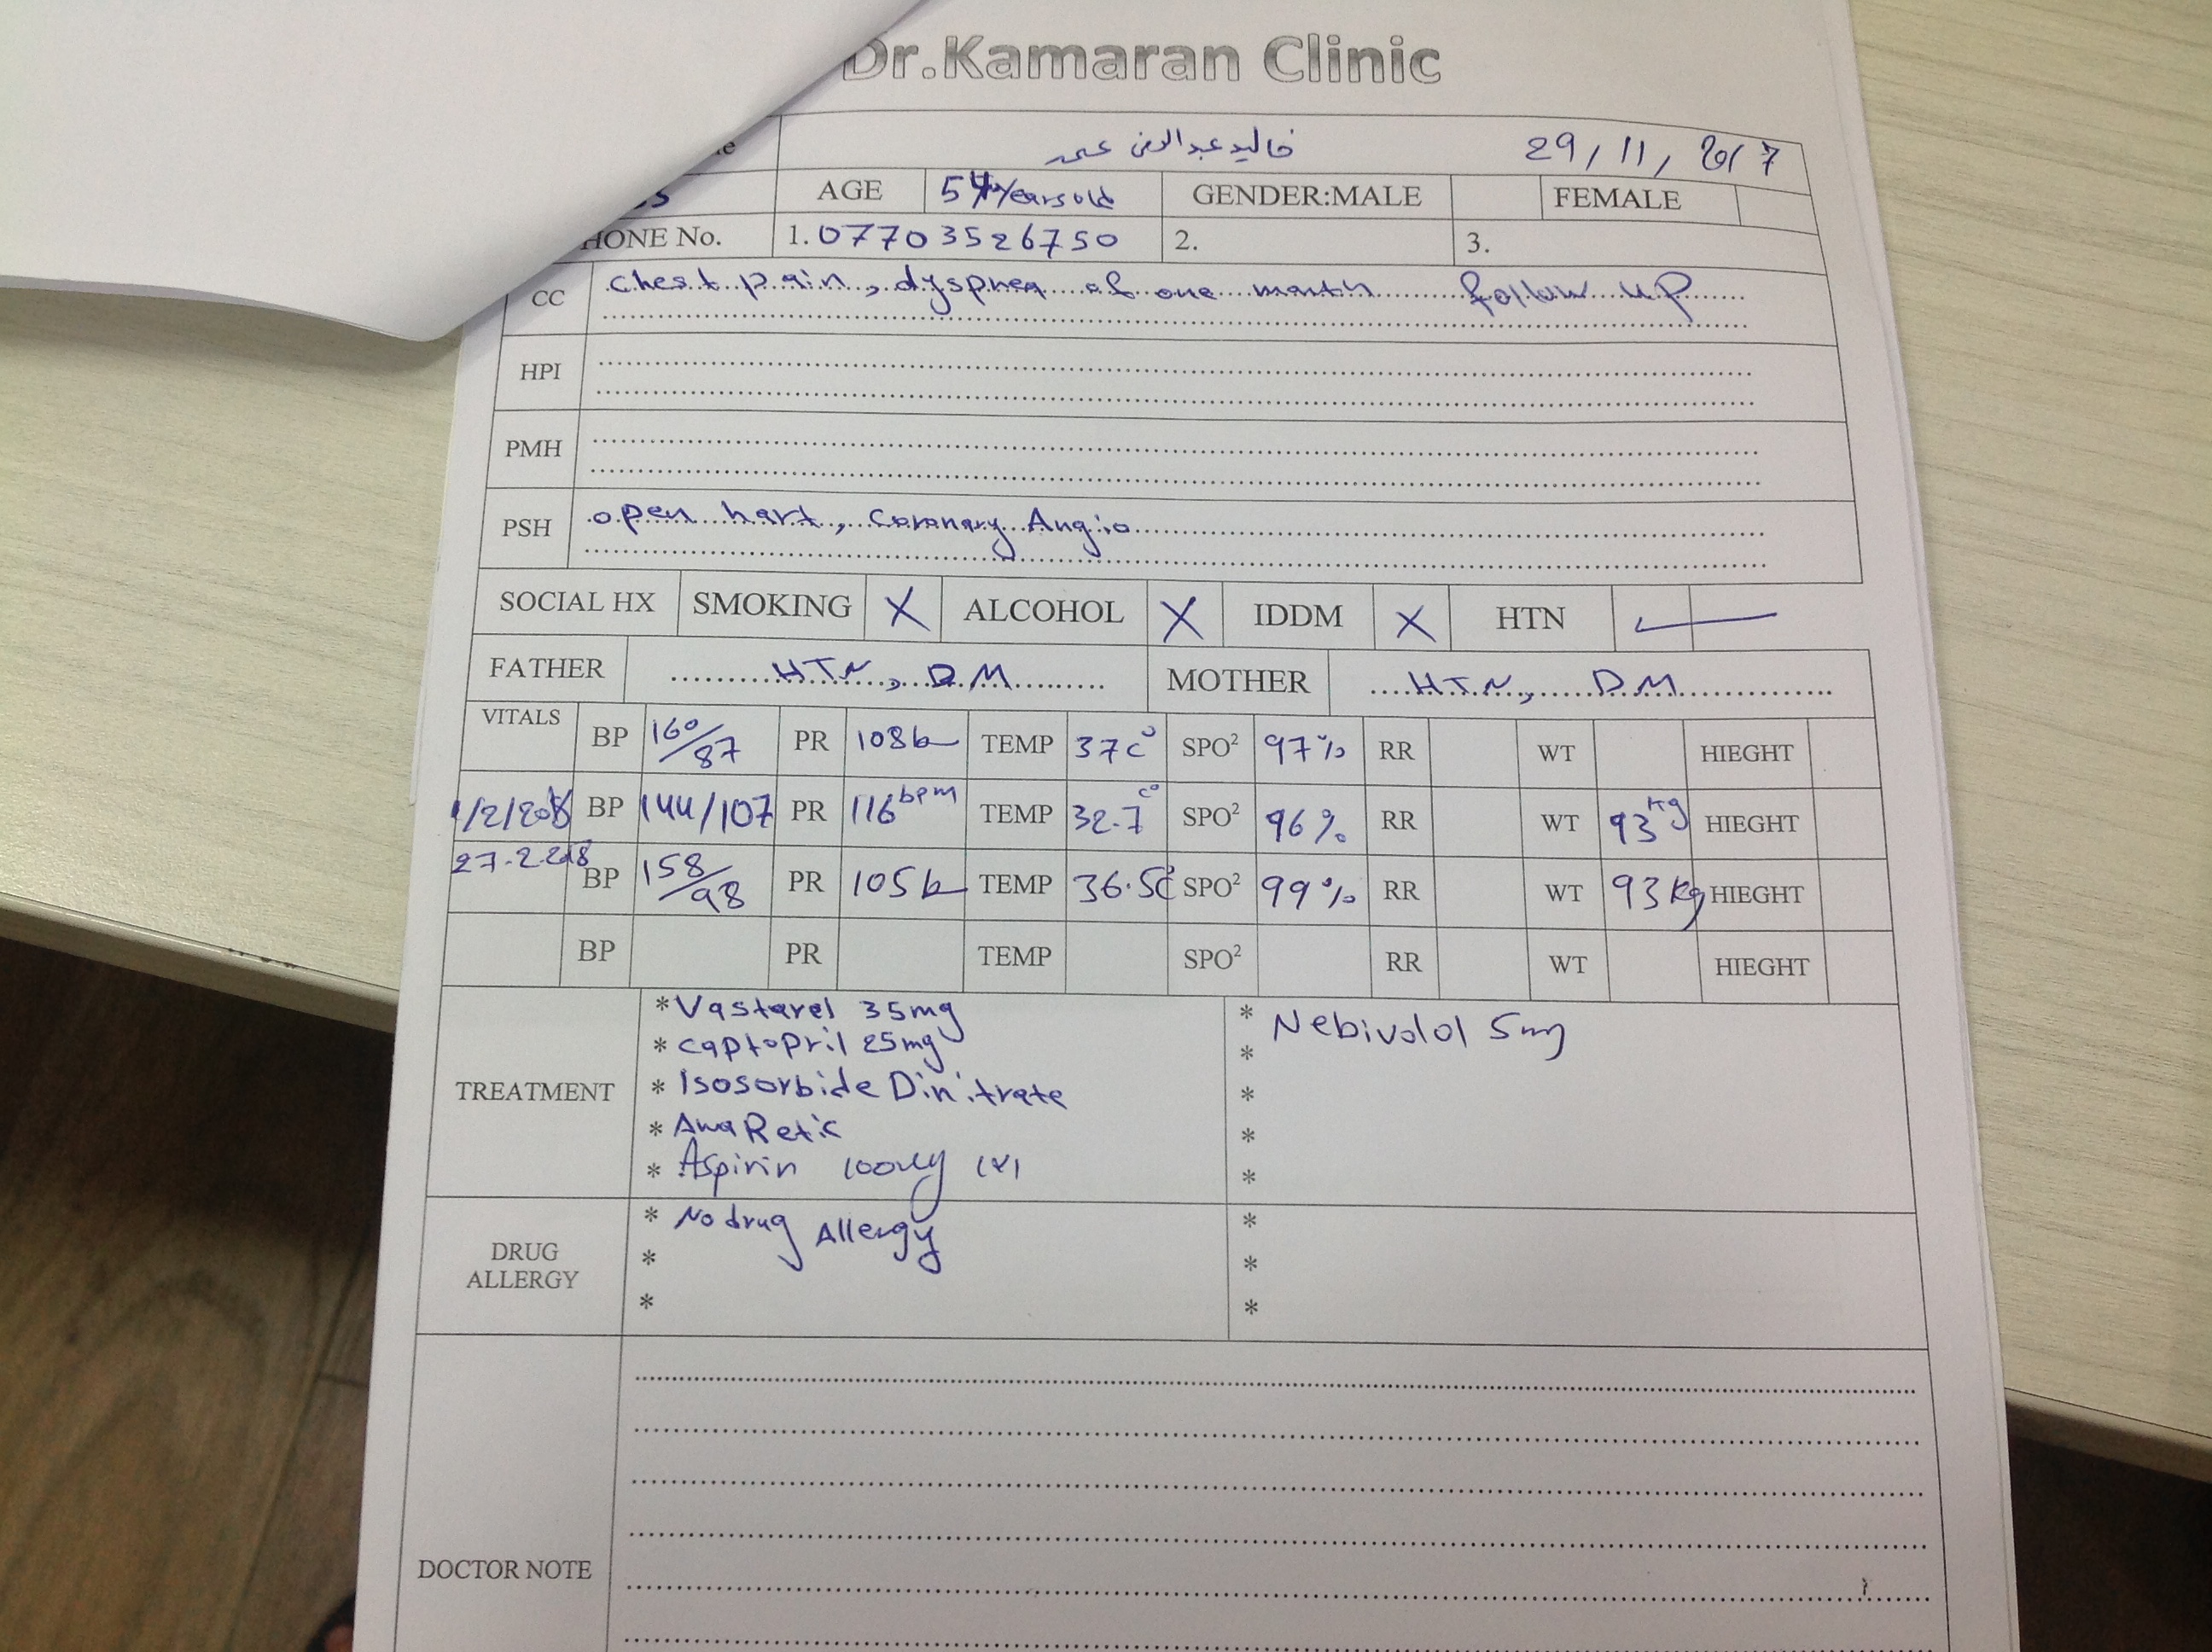 Dr.Kamaran Clinic
29/11/2017
AGE 54 years old GENDER:MALE FEMALE
PHONE No. 1. 07703526750 2. 3.
CC chest pain, dyspnea of one month follow up
HPI
PMH
PSH open hart, Coronary Angio
SOCIAL HX SMOKING X ALCOHOL X IDDM X HTN
FATHER HTN, DM MOTHER HTN, DM
VITALS BP 160/87 PR 108b TEMP 37c° SPO² 97% RR WT HIEGHT
1/2/2018 BP 144/107 PR 116 bpm TEMP 32.7 c° SPO² 96% RR WT 93 kg HIEGHT
27.2.2018 BP 158/98 PR 105b TEMP 36.5c° SPO² 99% RR WT 93 kg HIEGHT
BP PR TEMP SPO² RR WT HIEGHT
TREATMENT
* Vastarel 35mg
* captopril 25mg
* Isosorbide Dinitrate
* AwaRetic
* Aspirin 100mg 1x1
* Nebivolol 5mg
*
*
*
*
DRUG ALLERGY
* No drug Allergy
*
*
*
*
*
DOCTOR NOTE